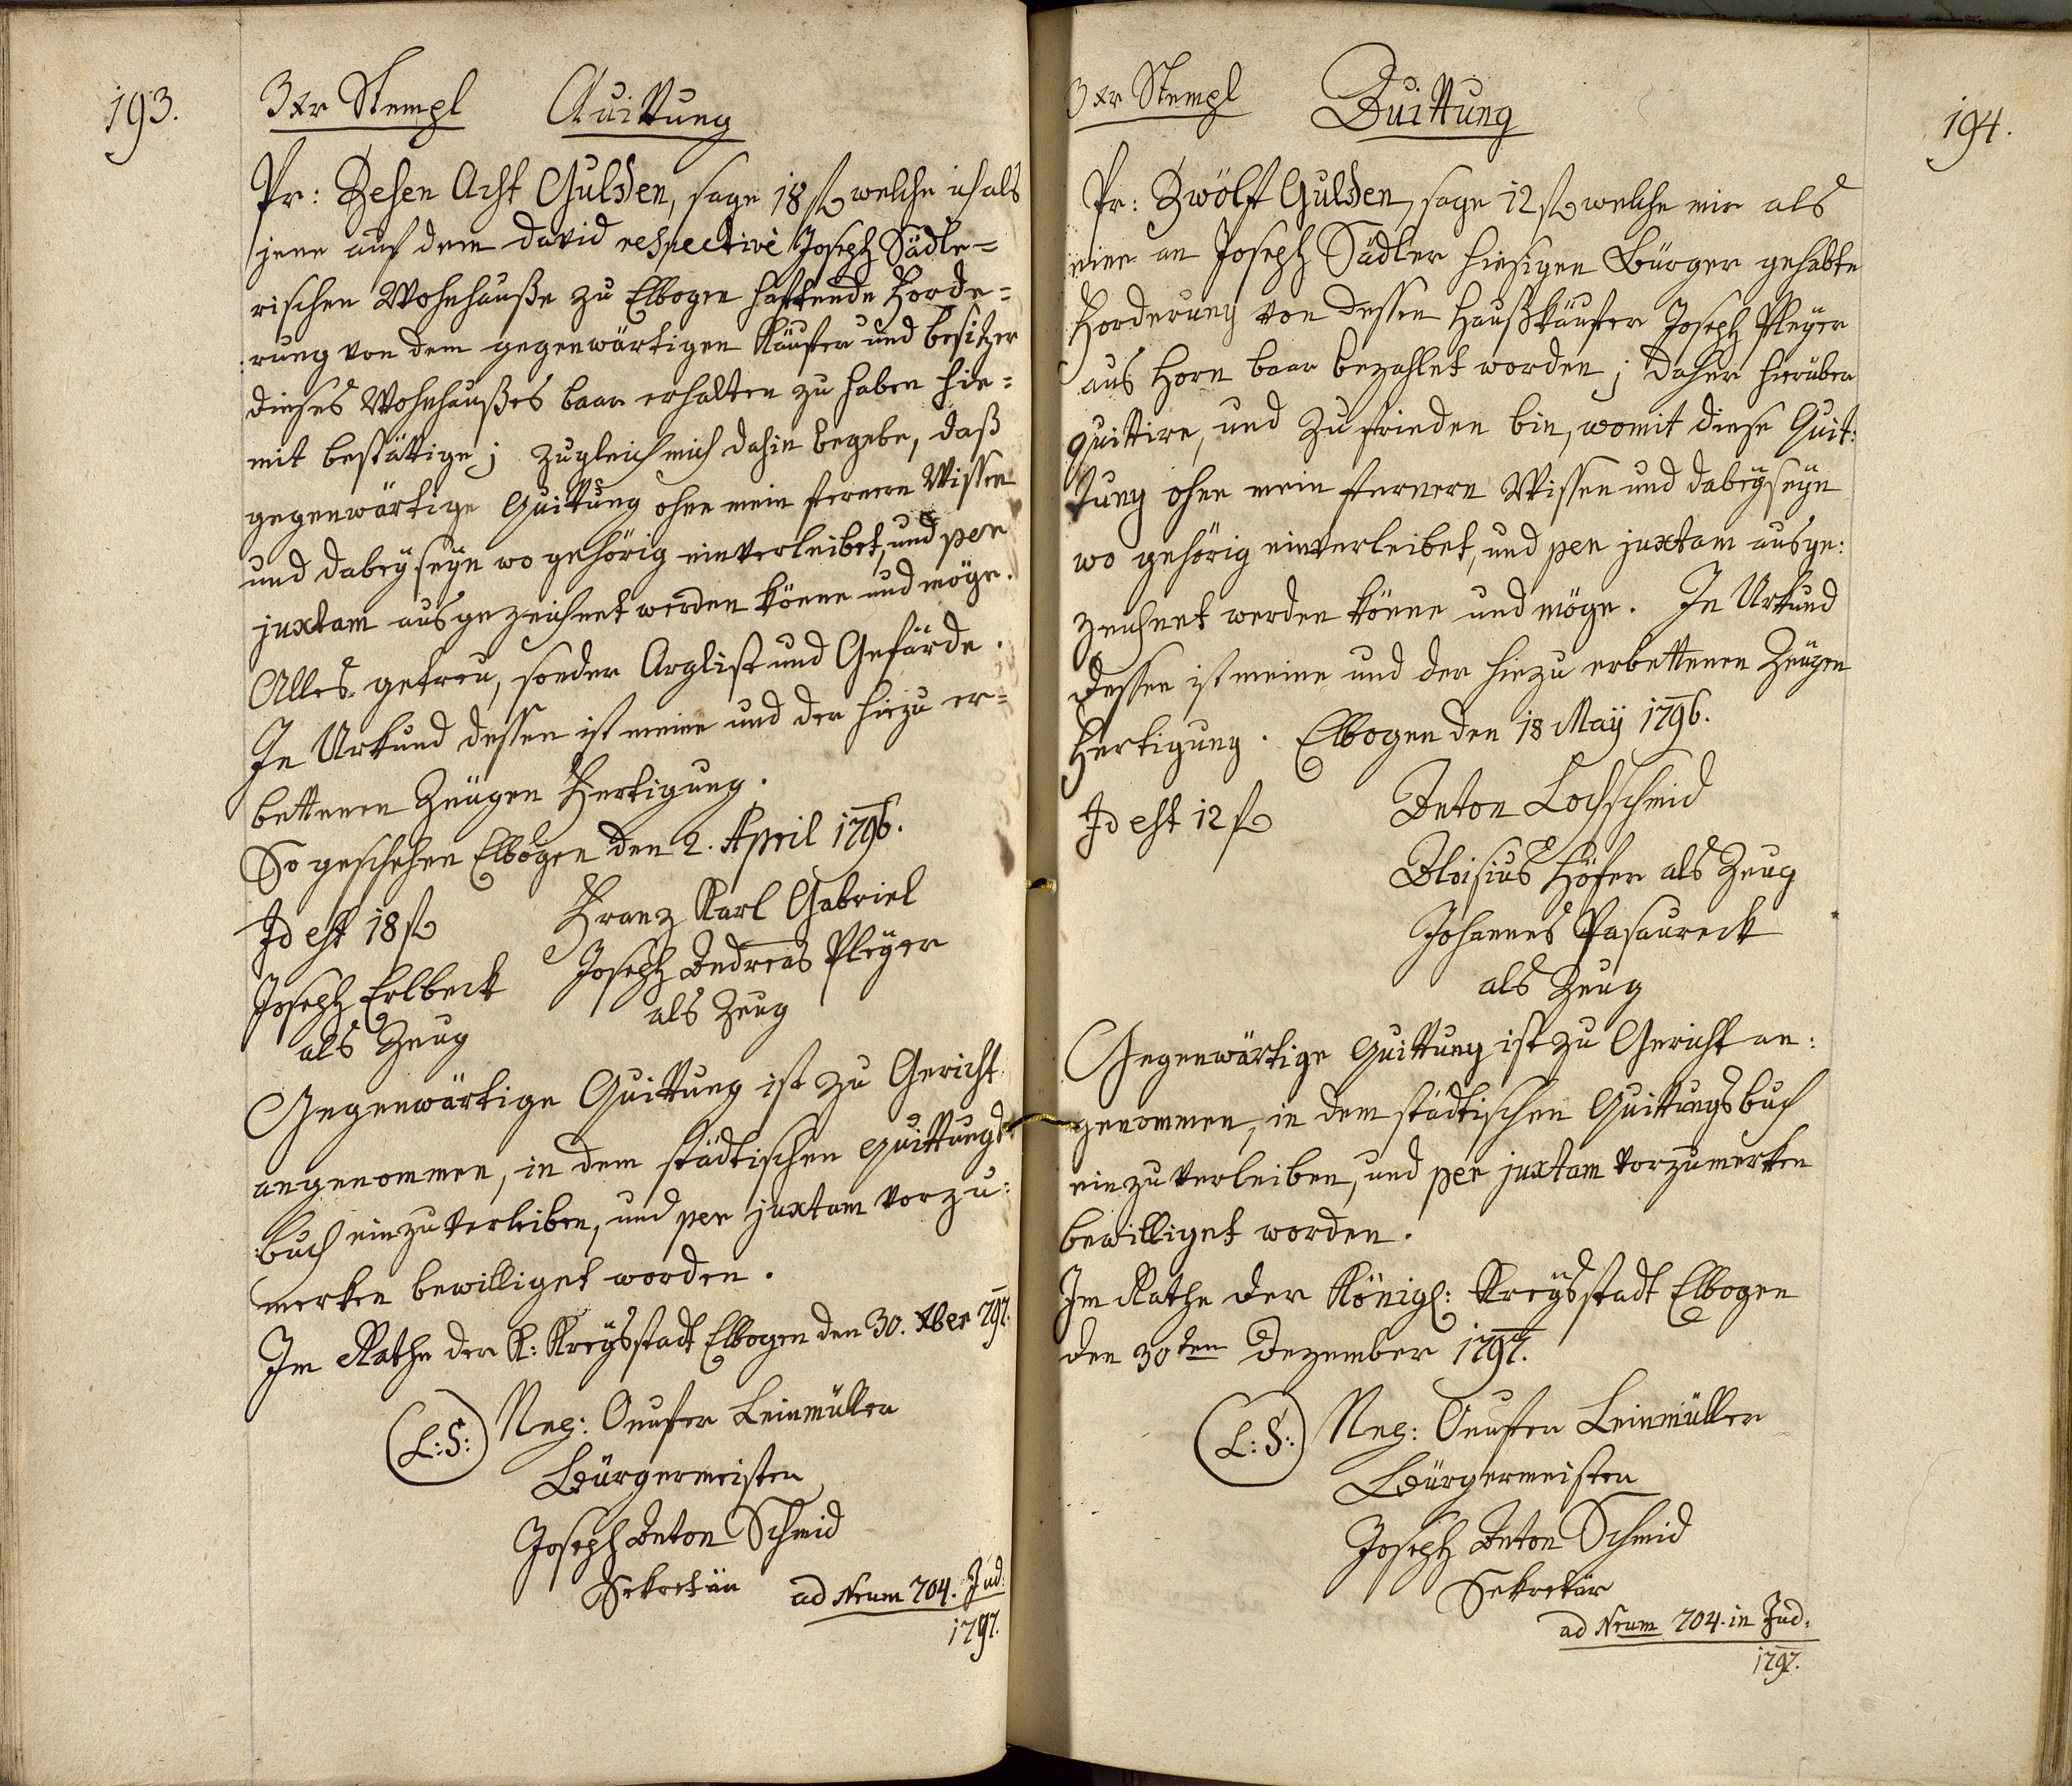 193.
3 xr Stempl Quittung
Pr: Zehen Acht Gulden, sage 18 fl welche ich als
jene auf dem David respective Joseph Sädle-
rischen Wohnhauße zu Elbogen haftende Forde-
rung von dem gegenwärtigen Käufer und besitzer
dieses Wohnhaußes baar erhalten zu haben hie-
mit bestättige; zugleich mich dahin begebe, daß
gegenwärtige Quittung ohne mein ferneren Wissen
und dabeyseyn wo gehörig einverleibet, und per
juxtam ausgezeichnet werden könne und möge.
Alles getreu, sonder Arglist und Gefärde.
In Urkund dessen ist meine und der hiezu er-
bettenen Zeugen Fertigung.
So geschehen Elbogen den 2. April 1796.
Id est 18 fl Franz Karl Gabriel
Joseph Erlbeck Joseph Andreas Pleyer
als Zeug als Zeug
Gegenwärtige Quittung ist zu Gericht
angenommen, in dem städtischen Quittungs-
buch einzuverleiben, und per juxtam vorzu-
merken bewilliget worden.
Im Rathe der K: Kreysstadt Elbogen den 30. Xber 797.
(L:S:) Neg: Onufer Leinmüller
Bürgermeister
Joseph Anton Schmid
Sekretär ad Nrum 704. Jud:
1797.
194.
3 xr Stempl Quittung
Pr: Zwölf Gulden, sage 12 fl welche mir als
eine an Joseph Sädler hiesigen Bürger gehabte
Forderung von dessen Haußkäufer Joseph Pleyer
aus Horn baar bezahlet worden; daher hierüber
quittire, und zufrieden bin, womit diese Quit:
tung ohne mein ferneren Wissen und dabeyseyn
wo gehörig einverleibet, und per juxtam ausge:
zeichnet werden könne und möge. In Urkund
dessen ist meine und der hiezu erbettenen Zeugen
Fertigung. Elbogen den 18 May 1796.
Id est 12 fl Anton Lochschmid
Aloisius Höfer als Zeug
Johannes Pasaureck
als Zeug
Gegenwärtige Quittung ist zu Gericht an:
genommen, in dem städtischen Quittungsbuch
einzuverleiben, und per juxtam vorzumerken
bewilliget worden.
Im Rathe der Königl: Kreysstadt Elbogen
den 30ten Dezember 1797.
(L:S:) Neg: Onufer Leinmüller
Bürgermeister
Joseph Anton Schmid
Sekretär
ad Nrum 704. in Jud:
1797.